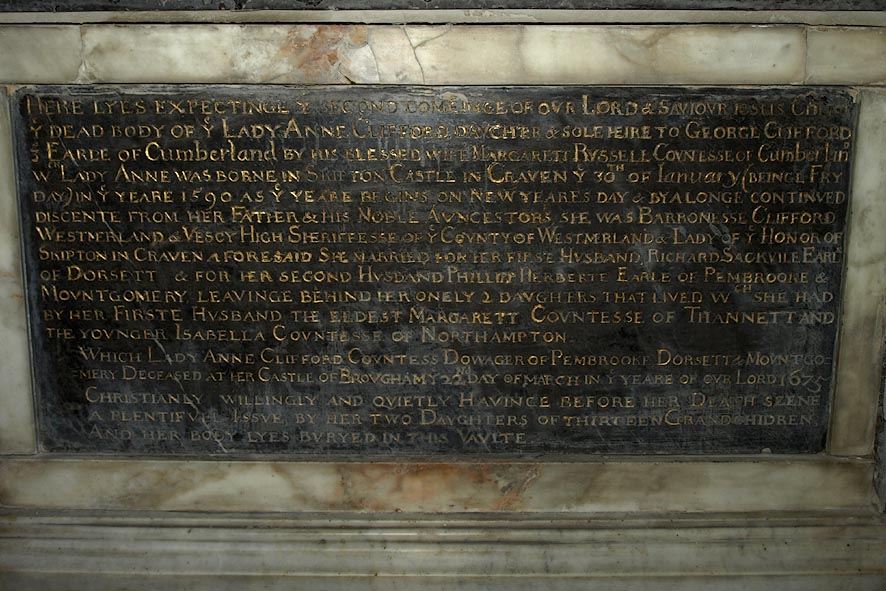 HERE LYES EXPECTINGE Yᴱ SECOND COMEINGE OF OUR LORD & SAVIOUR JESUS
Yᴱ DEAD BODY OF Yᴱ LADY ANNE CLIFFORD DAUGHTER & SOLE HEIRE TO GEORGE CLIFFORD
3ᴰ EARLE OF CUMBERLAND BY HIS BLESSED WIFE MARGARETT RUSSELL COUNTESSE OF
Wᶜʰ LADY ANNE WAS BORNE IN SKIPTON CASTLE IN CRAVEN Yᴱ 30ᵀᴴ OF January (BEINGE FRY
DAY) IN Yᴱ YEARE 1590 AS Yᴱ YEARE BEGINS ON NEW YEARES DAY & BY A LONGE CONTINUED
DISCENTE FROM HER FATHER & HIS NOBLE AUNCESTORS SHE WAS BARRONESSE CLIFFORD
WESTMERLAND & VESCY HIGH SHERIFFESSE OF Yᴱ COUNTY OF WESTMERLAND & LADY OF Yᴱ HONOR OF
SKIPTON IN CRAVEN AFORESAID SHE MARRIED FOR HER FIRST HUSBAND, RICHARD SACKVILE EARL
OF DORSETT & FOR HER SECOND HUSBAND PHILLIP HERBERTE EARLE OF PEMBROOKE &
MOUNTGOMERY LEAVINGE BEHIND HER ONELY 2 DAUGHERS THAT LIVED Wᶜᴴ SHE HAD
BY HER FIRSTE HUSBAND THE ELDEST MARGARETT COUNTESSE OF THANNETT AND
THE YOUNGER ISABELLA COUNTESSE OF NORTHAMPTON.
WHICH LADY ANNE CLIFFORD COUNTESS DOWAGER OF PEMBROOKE DORSETT & MOUNTGO-
MERY DECEASED AT HER CASTLE OF BROUGHAM Yᴱ 22ᴺᴰ DAY OF MARCH IN Yᴱ YEARE OF OUR LORD 1675
CHRISTIANLY WILLINGLY AND QUIETLY HAVINGE BEFORE HER DEATH SEENE
A PLENTIFULL ISSUE BY HER TWO DAUGHTERS OF THIRTEEN GRANDCHIDREN
AND HER BODY LYES BURYED IN THIS VAULTE.